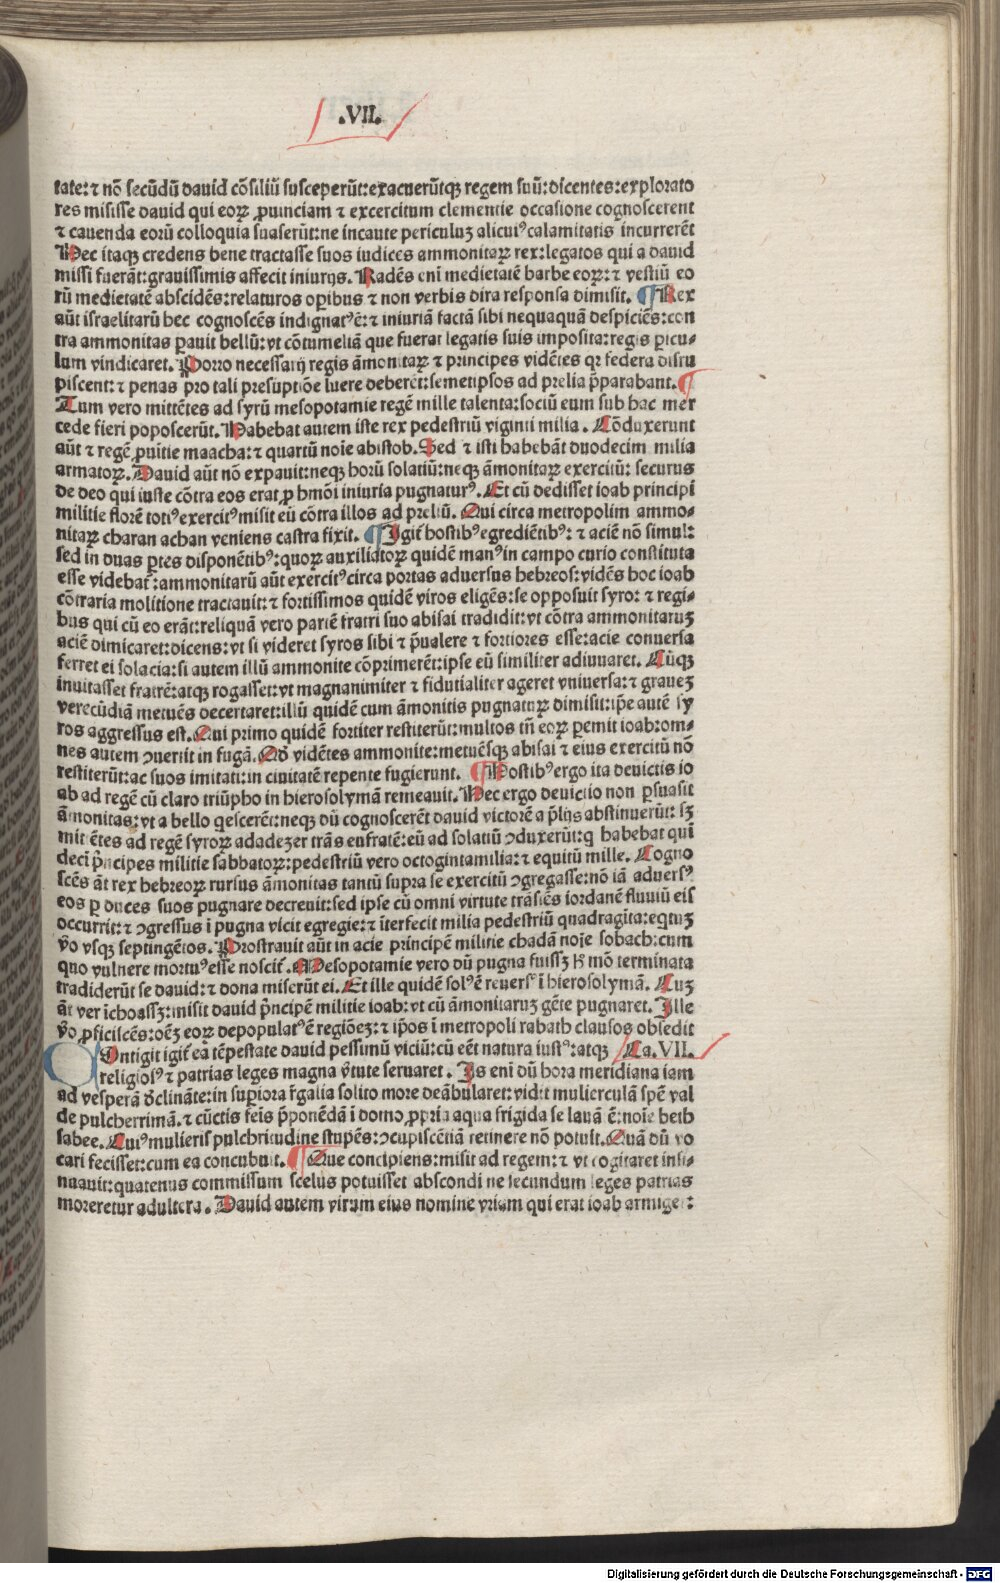 .VII.
tate: ⁊ nō secūdū dauid cōsiliū susceperūt: exacuerūtqꝫ regem suū: dicentes: explorato
res misisse dauid qui eoꝝ ꝓuinciam ⁊ excercitum clementie occasione cognoscerent
⁊ cauenda eorū colloquia suaserūt: ne incaute periculuꝫ alicuiꝰ calamitatis incurrerēt
Hec itaqꝫ credens bene tractasse suos iudices ammonitaꝝ rex: legatos qui a dauid
missi fuerāt: grauissimis affecit iniurijs. Radēs eni medietatē barbe eoꝝ: ⁊ vestiū eo
rū medietatē abscidēs: relaturos opibus ⁊ non verbis dira responsa dimisit. ¶ Rex
aūt israelitarū hec cognoscēs indignatꝰ ē: ⁊ iniuriā factā sibi nequaquā despiciēs: con
tra ammonitas ꝑauit bellū: vt cōtumeliā que fuerat legatis suis imposita: regis ꝑicu-
lum vindicaret. Porro necessarij regis āmonitaꝝ ⁊ principes vidētes qꝛ federa disru
piscent: ⁊ penas pro tali presuptiōe luere deberēt: semetipsos ad prelia p̄parabant. ¶
Tum vero mittētes ad syrū mesopotamie regē mille talenta: sociū eum sub hac mer
cede fieri poposcerūt. Habebat autem iste rex pedestriū viginti milia. Cōduxerunt
aūt ⁊ regē ꝓuitie maacha: ⁊ quartū noīe abistob. Sed ⁊ isti habebāt duodecim milia
armatoꝝ. Dauid aūt nō expauit: neqꝫ horū solatiū: neqꝫ āmonitaꝝ exercitū: securus
de deo qui iuste cōtra eos erat ꝓ hmōi iniuria pugnaturꝰ. Et cū dedisset ioab principi
militie florē totiꝰ exercitꝰ misit eū cōtra illos ad preliū. Qui circa metropolim ammo-
nitaꝝ charan achan veniens castra fixit. ¶ Igit᷑ hostibꝰ egrediētibꝰ: ⁊ aciē nō simul:
sed in duas ꝑtes disponētibꝰ: quoꝝ auxiliatoꝝ quidē manꝰ in campo curio constituta
esse videbat᷑: ammonitarū aūt exercitꝰ circa portas aduersus hebreos: vidēs hoc ioab
cōtraria molitione tractauit: ⁊ fortissimos quidē viros eligēs: se opposuit syro: ⁊ regi-
bus qui cū eo erāt: reliquā vero partē fratri suo abisai tradidit: vt cōtra ammonitaruꝫ
aciē dimicaret: dicens: vt si videret syros sibi ⁊ p̄ualere ⁊ fortiores esse: acie conuersa
ferret ei solacia: si autem illū ammonite cōprimerēt: ipse eū similiter adiuuaret. Cūqꝫ
inuitasset fratrē: atqꝫ rogasset: vt magnanimiter ⁊ fidutialiter ageret vniuersa: ⁊ graueꝫ
verecūdiā metuēs decertaret: illū quidē cum āmonitis pugnatuꝝ dimisit: ip̄e autē sy
ros aggressus est. Qui primo quidē fortiter restiterūt: multos tn̄ eoꝝ ꝑemit ioab: om-
nes autem ꝯuertit in fugā. Qd̄ vidētes ammonite: metuēsqꝫ abisai ⁊ eius exercitū nō
restiterūt: ac suos imitati: in ciuitatē repente fugierunt. ¶ Hostibꝰ ergo ita deuictis io
ab ad regē cū claro triūpho in hierosolymā remeauit. Hec ergo deuictio non ꝑsuasit
āmonitas: vt a bello qescerēt: neqꝫ dū cognoscerēt dauid victorē a p̄lijs abstinuerūt: sꝫ
mittētes ad regē syroꝝ adadezer trās eufratē: eū ad solatiū ꝯduxerūt: q habebat qui
deci p̄ncipes militie sabbatoꝝ: pedestriū vero octogintamilia: ⁊ equitū mille. Cogno
scēs āt rex hebreoꝝ rursus āmonitas tantū supra se exercitū ꝯgregasse: nō iā aduersꝰ
eos ꝑ duces suos pugnare decreuit: sed ipse cū omni virtute trāsiēs iordanē fluuiū eis
occurrit: ⁊ ꝯgressus ī pugna vicit egregie: ⁊ īterfecit milia pedestriū quadragīta: eqtuꝫ
v̄o vsqꝫ septingētos. Prostrauit aūt in acie principē militie chadā noīe sobach: cum
quo vulnere mortuꝰ esse noscit᷑. Mesopotamie vero dū pugna fuissꝫ h̄ mō terminata
tradiderūt se dauid: ⁊ dona miserūt ei. Et ille quidē solꝰ ē reuersꝰ ī hierosolymā. Cuꝫ
āt ver īchoassꝫ: misit dauid p̄ncipē militie ioab: vt cū āmonitaruꝫ gēte pugnaret. Ille
v̄o ꝓficiscēs: oēꝫ eoꝝ depopulatꝰ ē regiōeꝫ: ⁊ ip̄os ī metropoli rabath clausos obsedit
Ontigit igit᷑ ea tēpestate dauid pessimū viciū: cū eēt natura iustꝰ: atqꝫ Ca. VII.
religiosꝰ ⁊ patrias leges magna v̄tute seruaret. Is eni dū hora meridiana iam
ad vesperā d̄clināte: in suꝑiora r̄galia solito more deābularet: vidit mulierculā spē val
de pulcherrimā. ⁊ cūctis feīs p̄ponēdā ī domo ꝓpria aqua frigida se lauā ē: noīe beth
sabee. Cuiꝰ mulieris pulchritudine stupēs: ꝯcupiscētiā retinere nō potuit. Quā dū vo
cari fecisset: cum ea concubuit. ¶ Que concipiens: misit ad regem: ⁊ vt cogitaret insi-
nuauit: quatenus commissum scelus potuisset abscondi ne secundum leges patrias
moreretur adultera. Dauid autem virum eius nomine vriam qui erat ioab armiger:
Digitalisierung gefördert durch die Deutsche Forschungsgemeinschaft - DFG